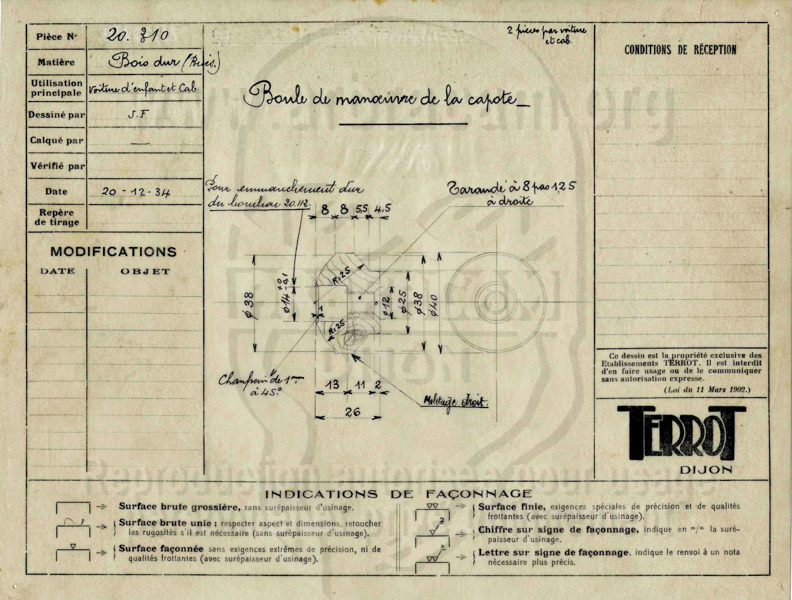 Pièce N° 20.310
Matière Bois dur
Utilisation principale Voiture d'enfant et Cab
Dessiné par S.F
Calqué par —
Vérifié par
Date 20-12-34
Repère de tirage
MODIFICATIONS
DATE OBJET
2 pièces par voiture
et cab.
Boule de manœuvre de la capote
Pour emmanchement dur
du bouchon 20.112.
Taraudé à 8 pas 125
à droite
8 8 5,5 4,5
R=25
ø38
ø14
ø12
ø25
ø38
ø40
R=25
Chanfrein de 1
à 45°
13 11 2
26
Moletage droit.
CONDITIONS DE RÉCEPTION
Ce dessin est la propriété exclusive des
Etablissements TERROT. Il est interdit
d'en faire usage ou de le communiquer
sans autorisation expresse.
(Loi du 11 Mars 1902.)
TERROT
DIJON
INDICATIONS DE FAÇONNAGE
Surface brute grossière, sans surépaisseur d'usinage.
Surface brute unie : respecter aspect et dimensions, retoucher
les rugosités s'il est nécessaire (sans surépaisseur d'usinage).
Surface façonnée sans exigences extrêmes de précision, ni de
qualités frottantes (avec surépaisseur d'usinage).
Surface finie, exigences spéciales de précision et de qualités
frottantes (avec surépaisseur d'usinage).
Chiffre sur signe de façonnage, indique en m/m la suré-
paisseur d'usinage.
Lettre sur signe de façonnage, indique le renvoi à un nota
nécessaire plus précis.